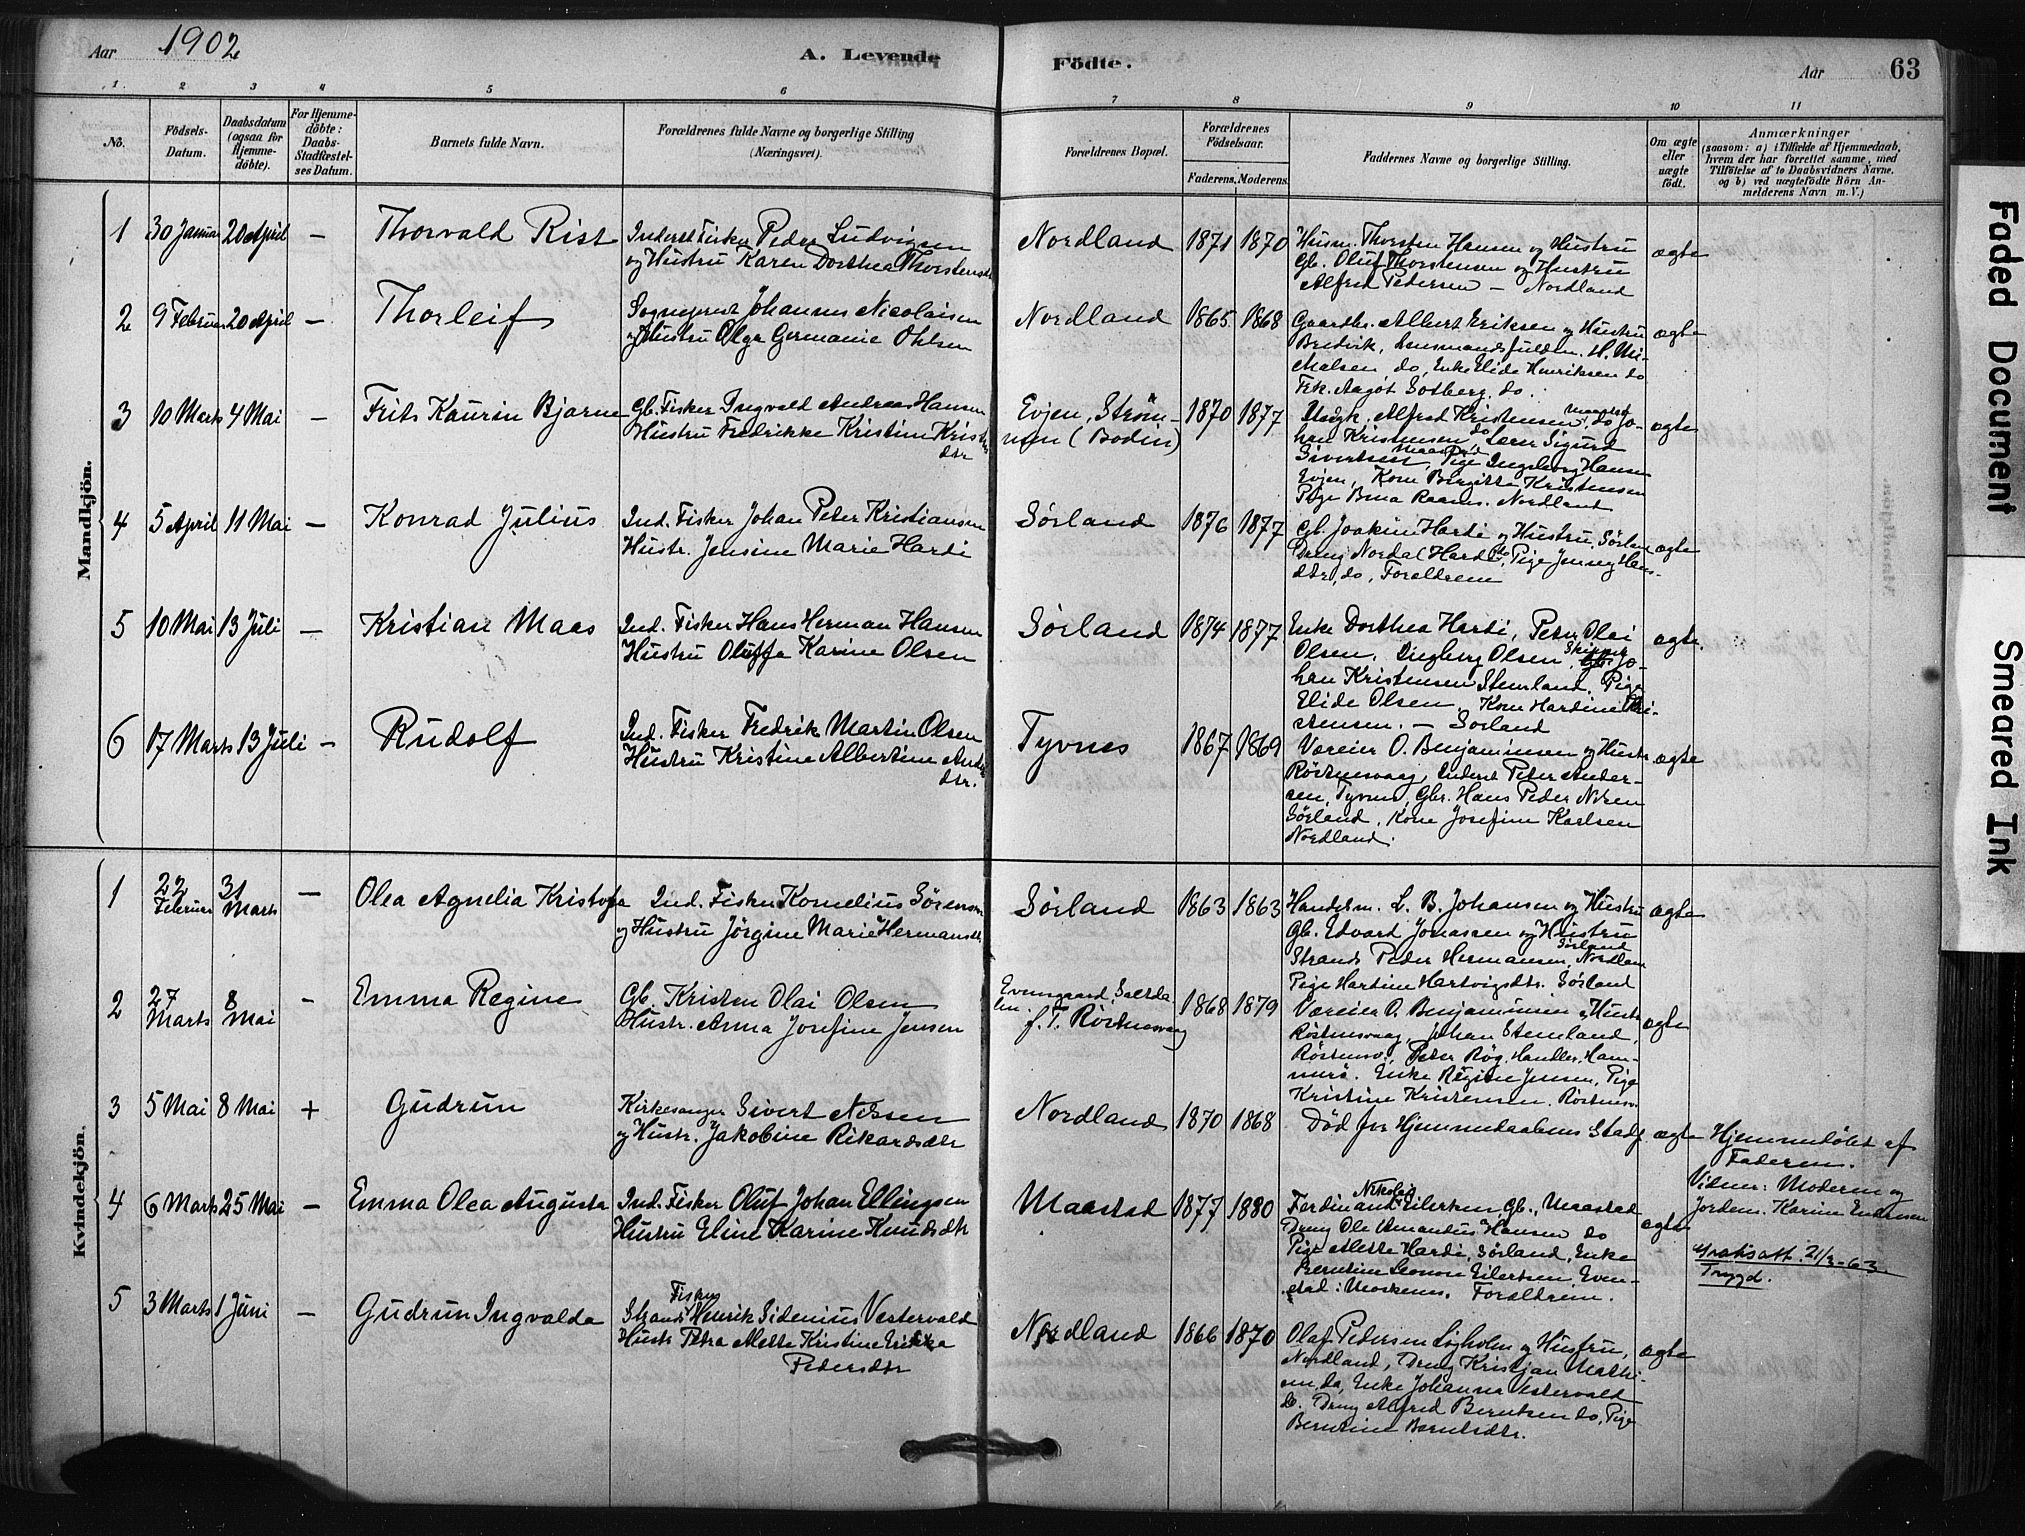 Aar 1902
A. Levende Födte.
Aar 63
1 2 3 4 5 6 7 8 9 10 11
No.
Födsels-Datum.
Daabsdatum (ogsaa for Hjemme-döbte).
For Hjemme-döbte: Daabs-Stadfæstel-ses Datum.
Barnets fulde Navn.
Forældrenes fulde Navne og borgerlige Stilling (Næringsvei).
Forældrenes Bopæl.
Forældrenes Födselsaar.
Faderens. Moderens.
Faddernes Navne og borgerlige Stilling.
Om ægte eller uægte födt.
Anmærkninger
(saasom: a) i Tilfælde af Hjemmedaab,
hvem der har forrettet samme, med
Tilföielse af to Daabsvidners Navne.
og b) ved uægtefödte Börn An-
melderens Navn m. V.)
Mandkjön.
1 30 Januar 20 April – Thorvald Rist
Inderst Fisker Peder Ludvigsen
og Hustru Karen Dorthea Thorstensdtr
Nordland 1871 1870
Husm. Thorsten Hansen og Hustru
Gb. Oluf Thorstensen og Hustru
Alfred Pedersen – Nordland
ægte
2 9 Februar 20 April – Thorleif
Sogneprest Johannes Nicolaisen
og Hustru Olga Germanie Ohlsen
Nordland 1865 1868
Gaardbr. Albert Eriksen og Hustru
Bredvik, Lensmandsfuldm. H. Mi-
kalsen, do, Enke Elide Henriksen do
Frk. Aagot Solberg, do.
ægte
3 10 Marts 4 Mai – Frits Kaurin Bjarne
Gb. Fisker Ingvald Andreas Hansen
Hustru Fredrikke Kristine Krist
dtr
Evjen, Ström-
men (Bodin)
1870 1877
Alfred Kristensen Maastad, do Jo-
han Kristensen do, Lærer Sigurd
Sivertsen Maastad, Pige Ingeborg Hansen
Evjen, Kone Birgitte Kristensen
Pige Nordland
ægte
4 5 April 11 Mai – Konrad Julius
Ind. Fisker Johan Peter Kristiansen
Hustr. Jensine Marie Hardi
Sörland 1876 1877
Gb. Joakim Hardi og Hustru, Sörlan
Dreng Nordal Hardi do, Pige Jenny Hans-
dtr, do, Forældrene
ægte
5 10 Mai 13 Juli – Kristian Maas
Ind. Fisker Hans Herman Hansen
Hustru Oluffa Karine Olsen
Sörland 1874 1877
Enke Dorthea Hardi, Peter Olai
Olsen, Ingeborg Olsen, Skipper Jo-
han Kristensen Stenland, Pige
Elide Olsen, Kone Hardine Kri-
stensen. – Sörland
ægte.
6 17 Marts 13 Juli – Rudolf
Ind. Fisker Fredrik Martin Olsen
Hustru Kristine Albertine Anders
dtr.
Tyvnes 1867 1869
Væreier O. Benjaminsen og Hustr
Röstnesvaag, Inderst Peter Ander-
sen, Tyvnes, Gbr. Hans Peder
Sörland, Kone Josefine Karlsen
Nordland.
ægte
Kvindekjön.
1 22 Februar 31 Marts – Olea Agnelia Kristofa
Ind. Fisker Kornelius Sörensen
og Hustru Jörgine Marie Hermansdtr
Sörland 1863 1863
Handelsm. L. B. Johansen og Hustru
Gb. Edvard Jonassen og Hustru Sörland
Strands. Peder Hermansen, Nordlan
Pige Hartine Hartvigsdtr. Sörland
ægte
2 27 Marts 8 Mai – Emma Regine
Gb. Kristen Olai Olsen
Hustr. Anna Josefine Jensen
Evensgaard, Saltda-
len. f. T. Röstnesvaag
1868 1879
Væreier O. Benjaminsen og Hustr
Röstnesvaag, Johan Stenland,
Röstnesv., Peter Rög, Handler, Ham-
merö. Enke Regine Jensen, Pige
Kristine Kristensen. Röstnesv.
ægte
3 5 Mai 8 Mai + Gudrun
Kirkesanger Sivert Nilssen
og Hustr. Jakobine Rikardsdtr
Nordland 1870 1868
Död för Hjemmedaabens Stadf.
ægte
Hjemmedöbt af
Faderen.
Vidner: Moderen og
Jordem. Karine
4 6 Marts 25 Mai – Emma Olea Augusta
Ind. Fisker Oluf Johan Ellingsen
Hustru Eline Karine Knudsdtr
Maastad 1877 1880
Ferdinant Nikolai Eilertsen, Gb., Maastad
Dreng Ole Amandus Hansen do
Pige Mette Hardi, Sörland, Enke
Berntine Leonore Eilertsen, Even-
stad i Moskenes. Forældrene.
ægte
Gratisatt. 21/3-63
Trygd.
5 3 Marts 1 Juni – Gudrun Ingvalda
Strands. Fisker Henrik Sidenius Vestervald
Hustr Petra Mette Kristine Erikka
Pedersdtr
Nordland 1866 1870
Olaf Pedersen Lögholm og Hustru,
Nordland, Dreng Kristjan Mathi-
sen, do, Enke Johanna Vestervald
do. Dreng Alfred Berntsen do, Pige
Berntine Berntsdtr.
ægte
Faded Document
Smeared Ink